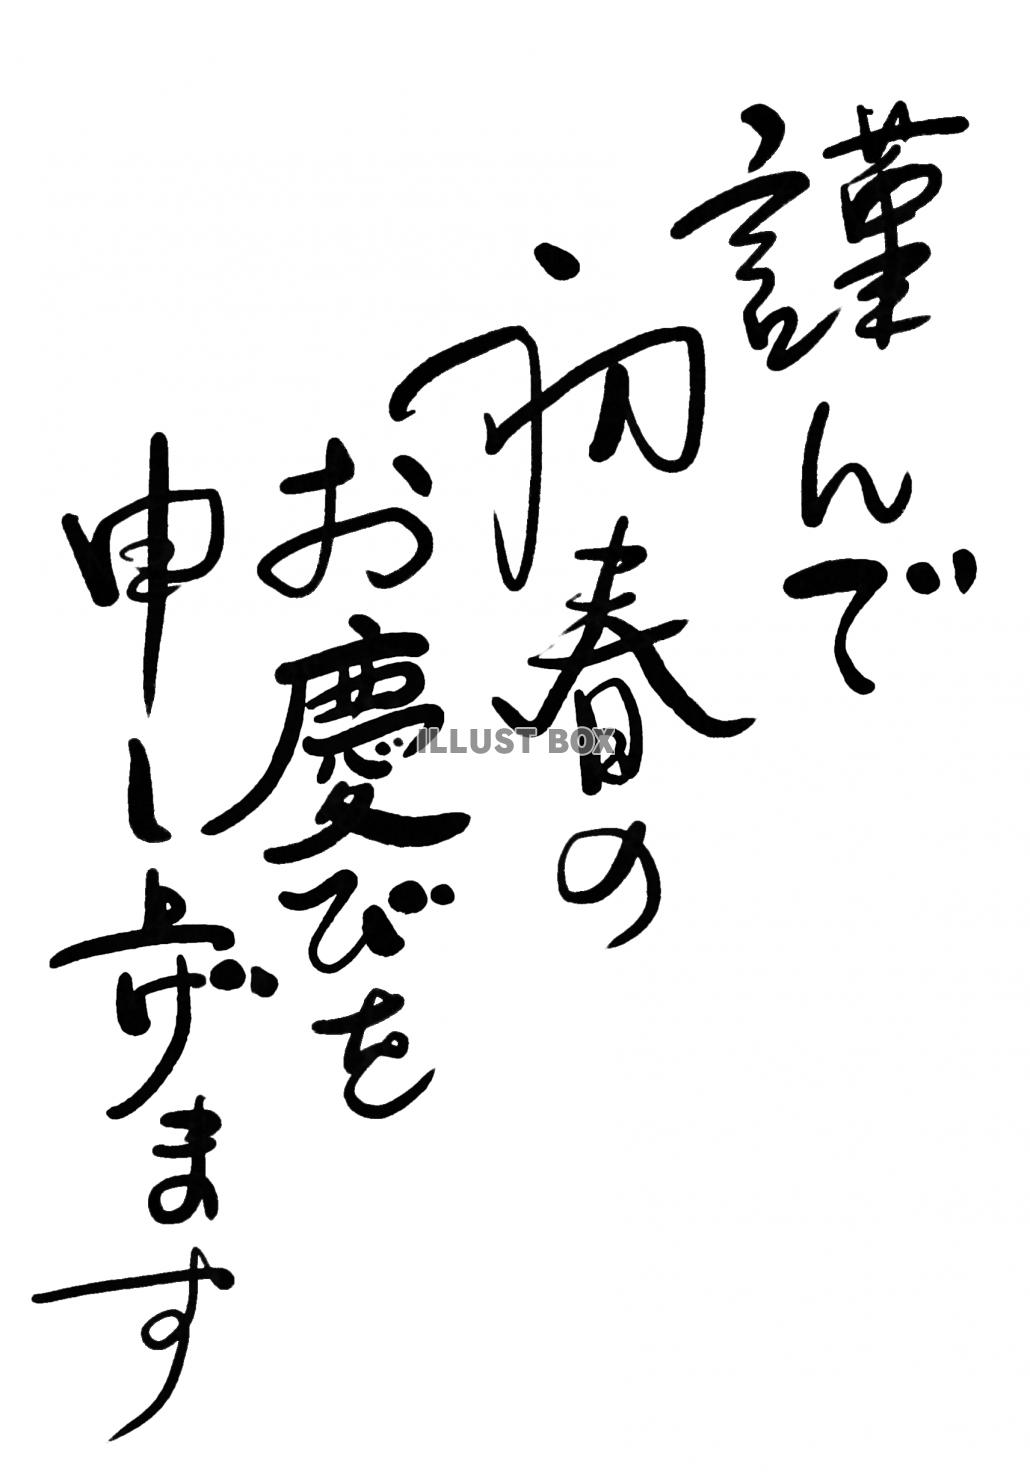 謹んで
初春の
お慶びを
申し上げます
ILLUST BOX